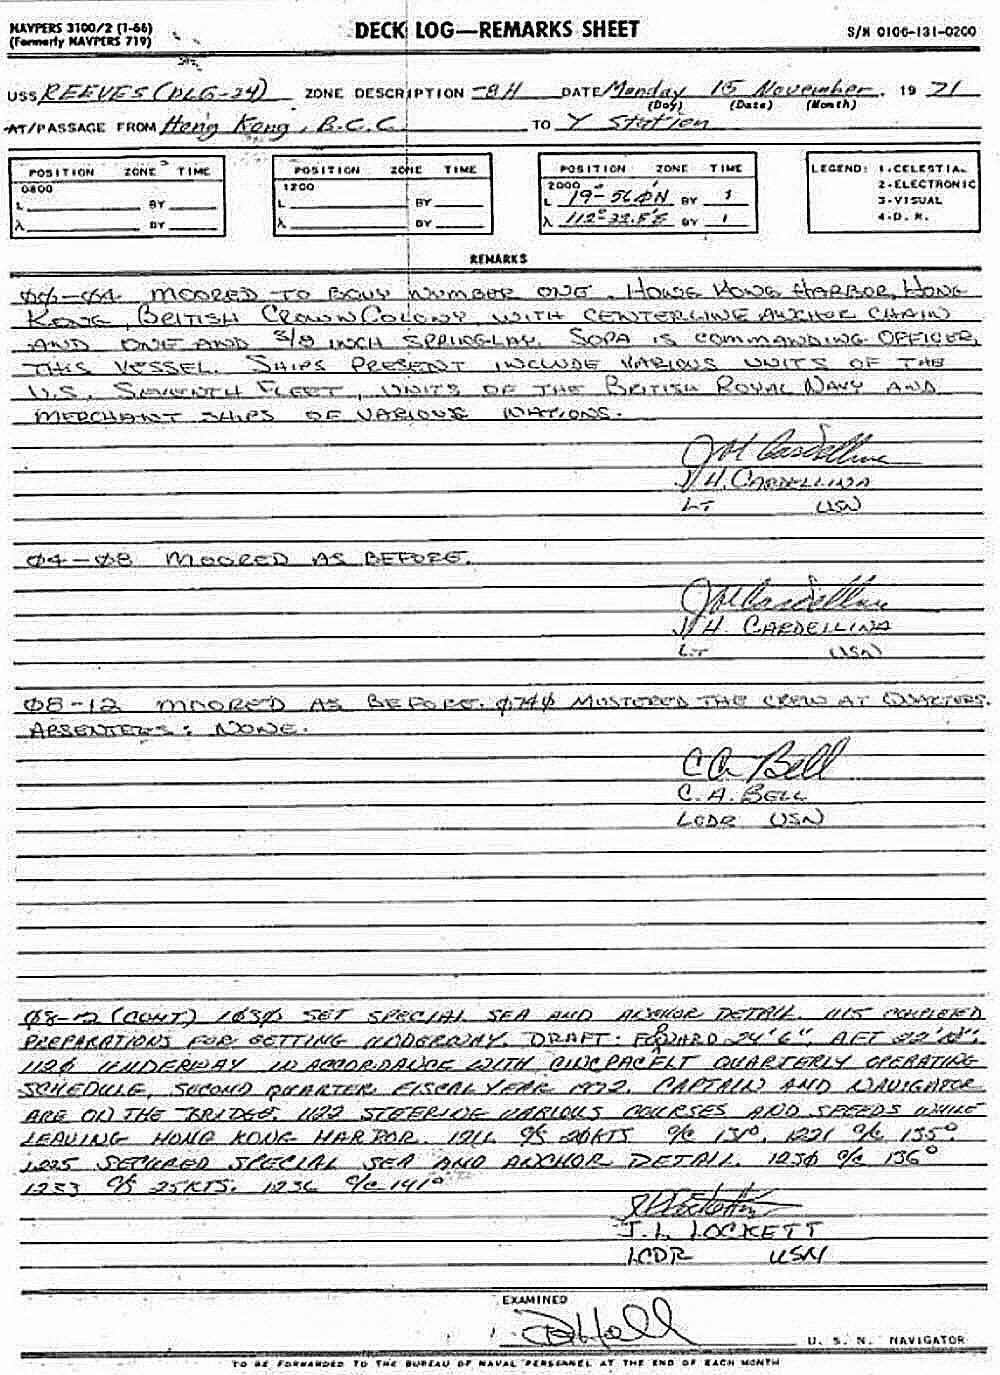 NAVPERS 3100/2 (1-66)
(Formerly NAVPERS 719)
DECK LOG—REMARKS SHEET
S/N 0106-131-0200
USS REEVES (DLG-24) ZONE DESCRIPTION -8H DATE Monday 15 November, 19 71
(Day) (Date) (Month)
AT/PASSAGE FROM Hong Kong, B.C.C. TO Y Station
POSITION ZONE TIME
0800
L BY
λ BY
POSITION ZONE TIME
1200
L BY
λ BY
POSITION ZONE TIME
2000
L 19-56.0N BY
λ 112-32.5'E BY
LEGEND: 1-CELESTIAL
2-ELECTRONIC
3-VISUAL
4-D. R.
REMARKS
ØØ-Ø4 MOORED TO BOUY NUMBER ONE, HONG KONG HARBOR, HONG
KONG, BRITISH CROWN COLONY WITH CENTERLINE ANCHOR CHAIN
AND ONE AND 5/8 INCH SPRINGLAY. SOPA IS COMMANDING OFFICER,
THIS VESSEL. SHIPS PRESENT INCLUDE VARIOUS UNITS OF THE
U.S. SEVENTH FLEET, UNITS OF THE BRITISH ROYAL NAVY AND
MERCHANT SHIPS OF VARIOUS NATIONS.
J H Cardellina
J. H. CARDELLINA
LT USN
Ø4-Ø8 MOORED AS BEFORE.
J H Cardellina
J. H. CARDELLINA
LT USN
Ø8-12 MOORED AS BEFORE. Ø74Ø MUSTERED THE CREW AT QUARTERS.
ABSENTEES: NONE.
C A Bell
C. A. BELL
LCDR USN
Ø8-12 (CONT) 1Ø3Ø SET SPECIAL SEA AND ANCHOR DETAIL. 1115 COMPLETED
PREPARATIONS FOR GETTING UNDERWAY. DRAFT: FORWARD 24'6", AFT
112Ø UNDERWAY IN ACCORDANCE WITH CINCPACFLT QUARTERLY OPERATING
SCHEDULE, SECOND QUARTER FISCAL YEAR 1972. CAPTAIN AND NAVIGATOR
ARE ON THE BRIDGE. 1122 STEERING VARIOUS COURSES AND SPEEDS WHILE
LEAVING HONG KONG HARBOR. 1211 C/S 20KTS C/C 131°. 1221 C/C 135°.
1225 SECURED SPECIAL SEA AND ANCHOR DETAIL. 123Ø C/C 136°
1233 C/S 25KTS. 1236 C/C 141°
J L Lockett
J. L. LOCKETT
LCDR USN
EXAMINED
U. S. N. NAVIGATOR
TO BE FORWARDED TO THE BUREAU OF NAVAL PERSONNEL AT THE END OF EACH MONTH